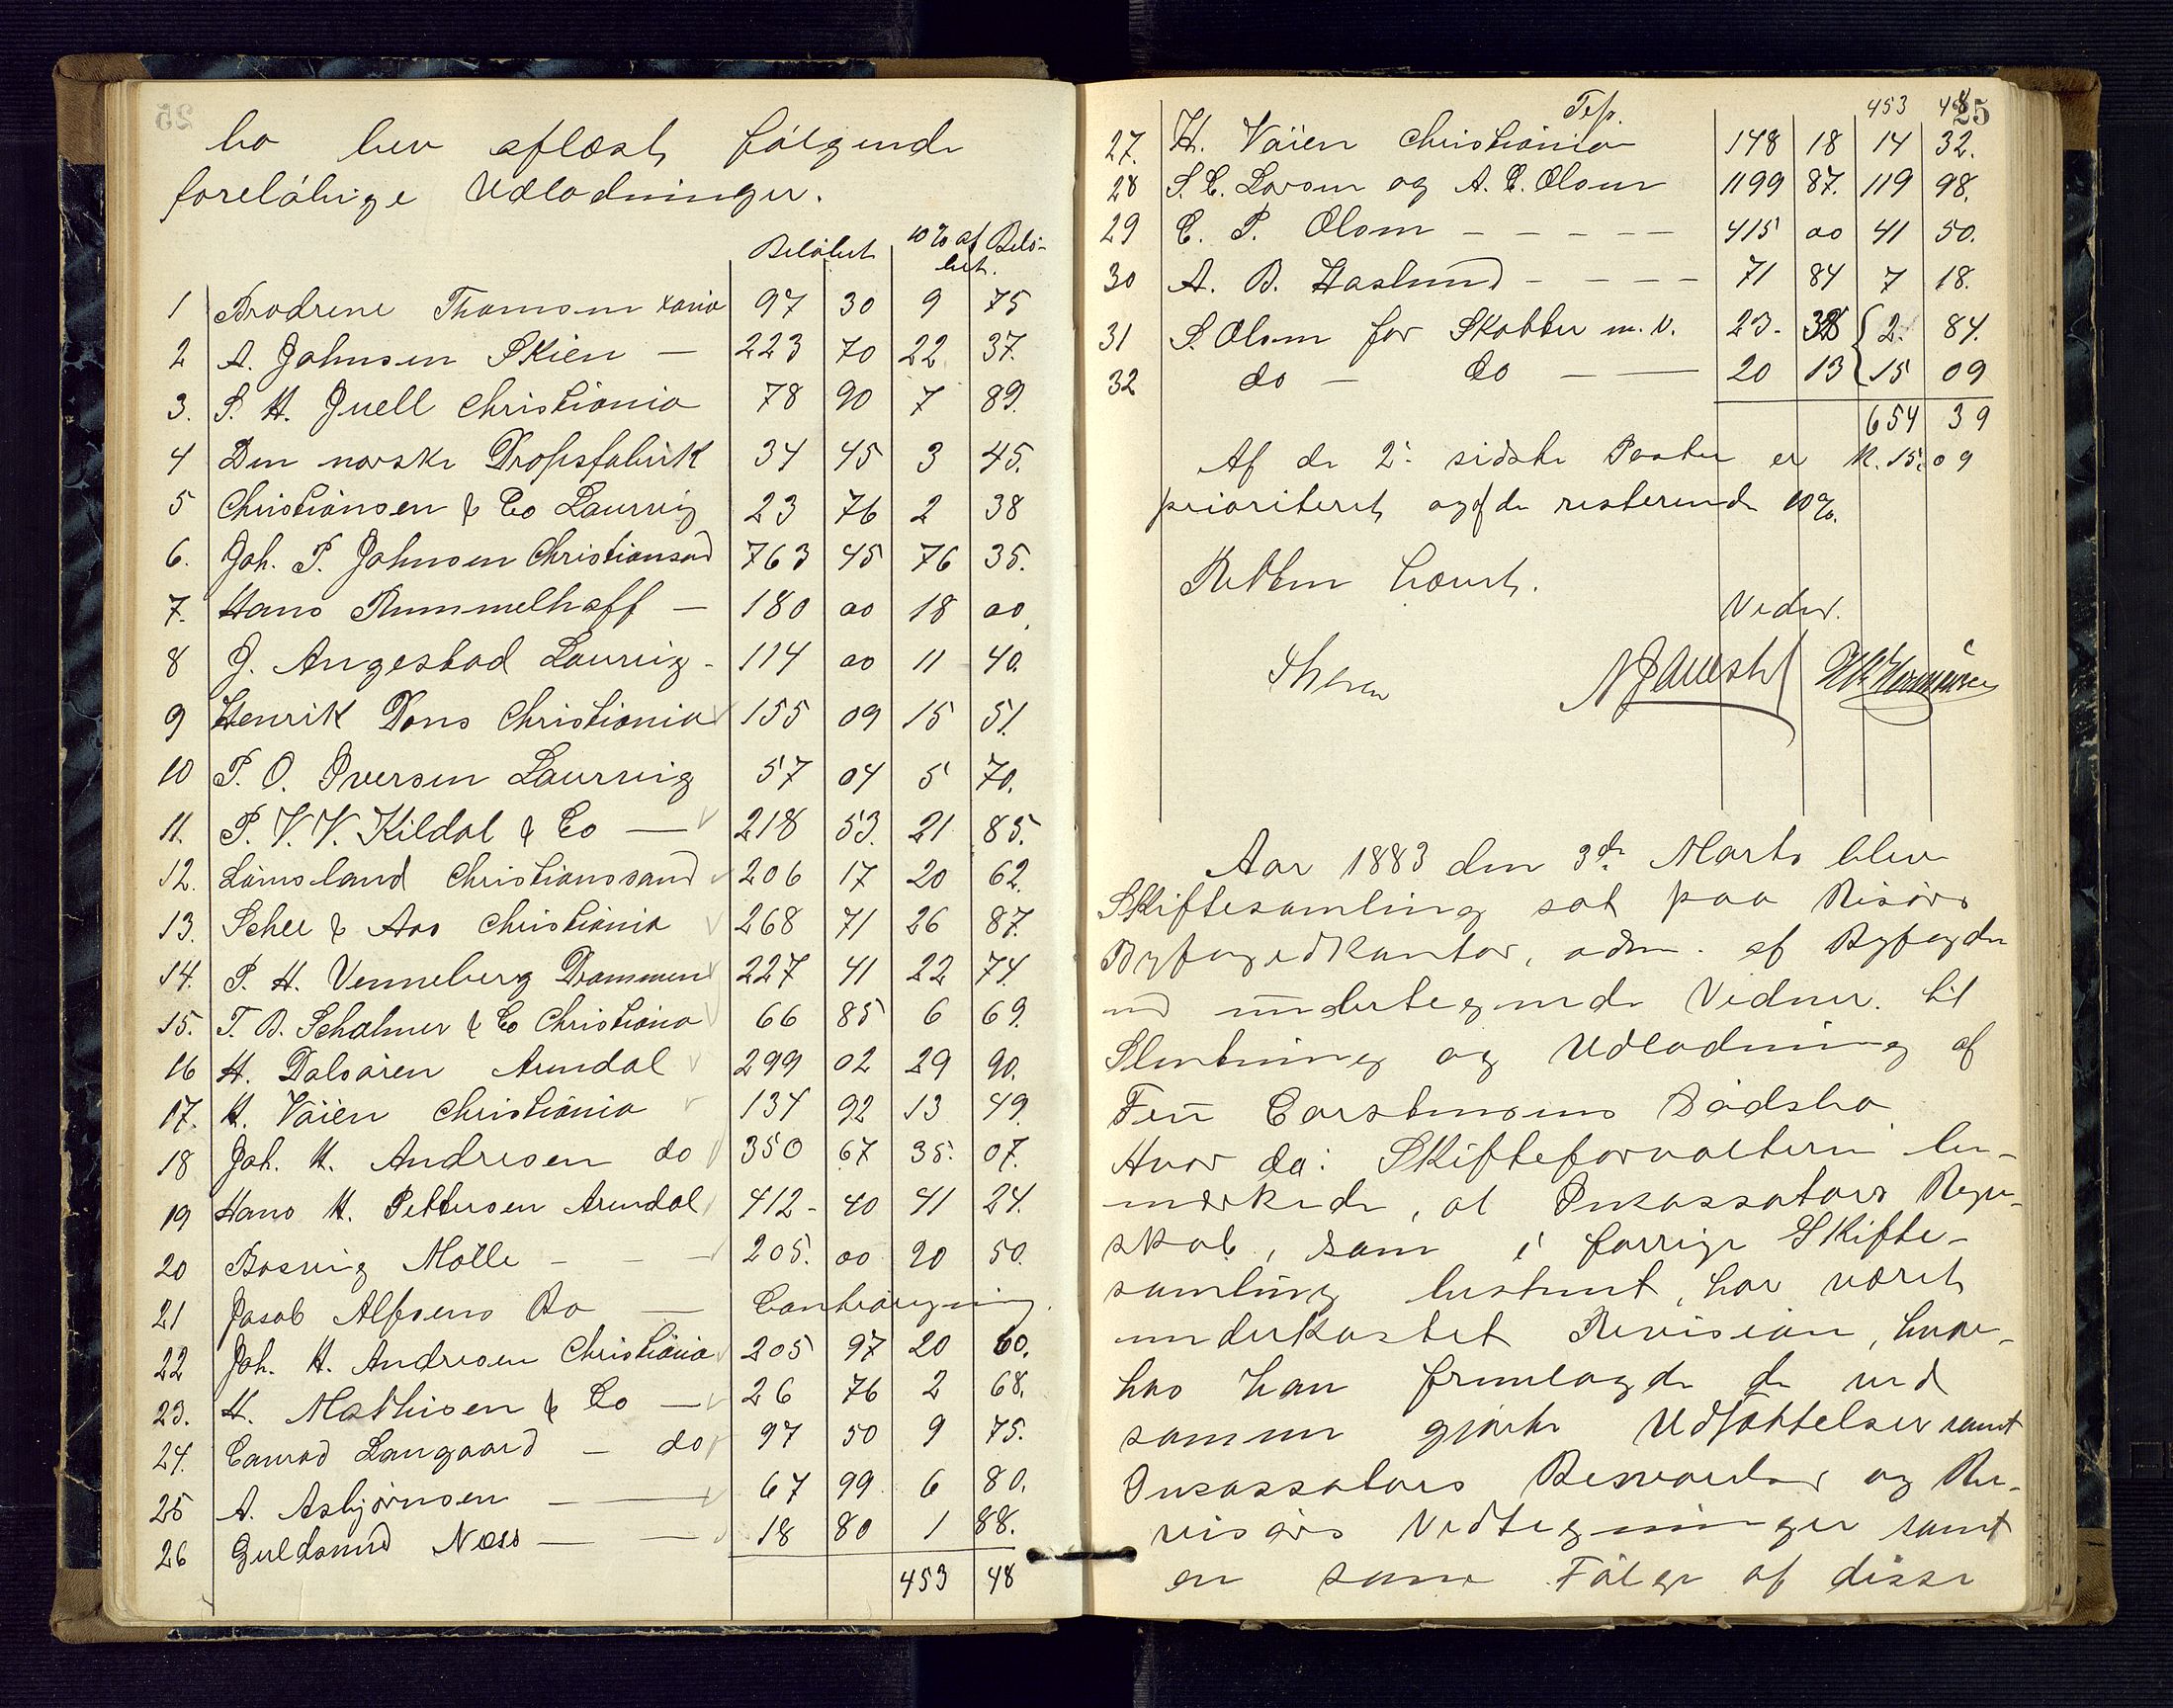 bo blev oplæst følgende
foreløbige Udlodninger.
Beløbet 10% af Belø-
bet.
1 Brødrene Thomsen Xania 97 30 9 75
2 A. Johnsen Skien — 223 70 22 37.
3. S. H. Juell Christiania 78 90 7 89.
4 Den norske Dropsfabrik 34 45 3 45.
5 Christiansen & Co Laurvig 23 76 2 38
6. Joh. P. Johnsen Christiansand 763 45 76 35.
7. Hans Rummelhoff — 180 00 18 00.
8 J. Angestad Laurvig - 114 00 11 40.
9 Henrik Dons Christiania 155 09 15 51.
10 P. O. Iversen Laurvig 57 04 5 70.
11. P. V. V. Kildal & Co — 218 53. 21 85.
12. Lømsland Christianssand 206 17 20 62.
13. Schee & Aas Christiania 268 71 26 87.
14. P. H. Venneberg Drammen 227 41 22 74.
15. T. B. Schalmer & Co Christiana 66 85 6 69.
16 H. Dalsøren Arendal 299 02 29 90.
17. H. Vøien Christiania 134 92 13 49.
18 Joh. H. Andresen do 350 67 35. 07.
19 Hans H. Pettersen Arendal 412- 40 41 24.
20 Bosvig Mølle - - 205. 00 20 50.
21 Jacob Alfsens Bo — Contrasøgning.
22 Joh. H. Andresen Christiania 205 97 20 60.
23. H. Mathisen & Co — 26 76 2 68.
24. Conrad Langaard — do 97 50 9 75.
25 A. Asbjørnsen — — 67 99 6 80.
26 Guldsmed Næss — — 18 80 1 88.
453 48
25
Tsp. 453 48
27. H. Vøien Christiania 148 18 14 32.
28 S. C. Larsen og A. C. Olsen 1199 87. 119 98.
29 C. P. Olsen - - - - - 415 00 41 50.
30 A. B. Haslund - - - - 71 84 7 18.
31 S. Olsen for Skatter m. V. 23. 38 { 2. 84.
32 do — do — — 20 13 { 15 09
654 39
Af de 2: sidste Poster er K. 15.09
prioriteret og af de resterende 10%.
Retten hævet.
Vidner.
Aar 1883 den 3de Marts blev
Skiftesamling sat paa Risørs
Byfogedkontor, adm. af Byfogden
med undertegnede Vidner til
Slutning og Udlodning af
Fru Carstensens Dødsbo
Hvor da: Skifteforvalteren be-
mærkede, at Inkassators Regn-
skab, som i forrige Skifte-
samling bestemt, har været
underkastet Revision, hvor-
hos han fremlagde de ved
samme gjorte Udsættelser samt
Inkassators Besvarelser og Re-
visors Vedtegninger samt
en som Følge af disse